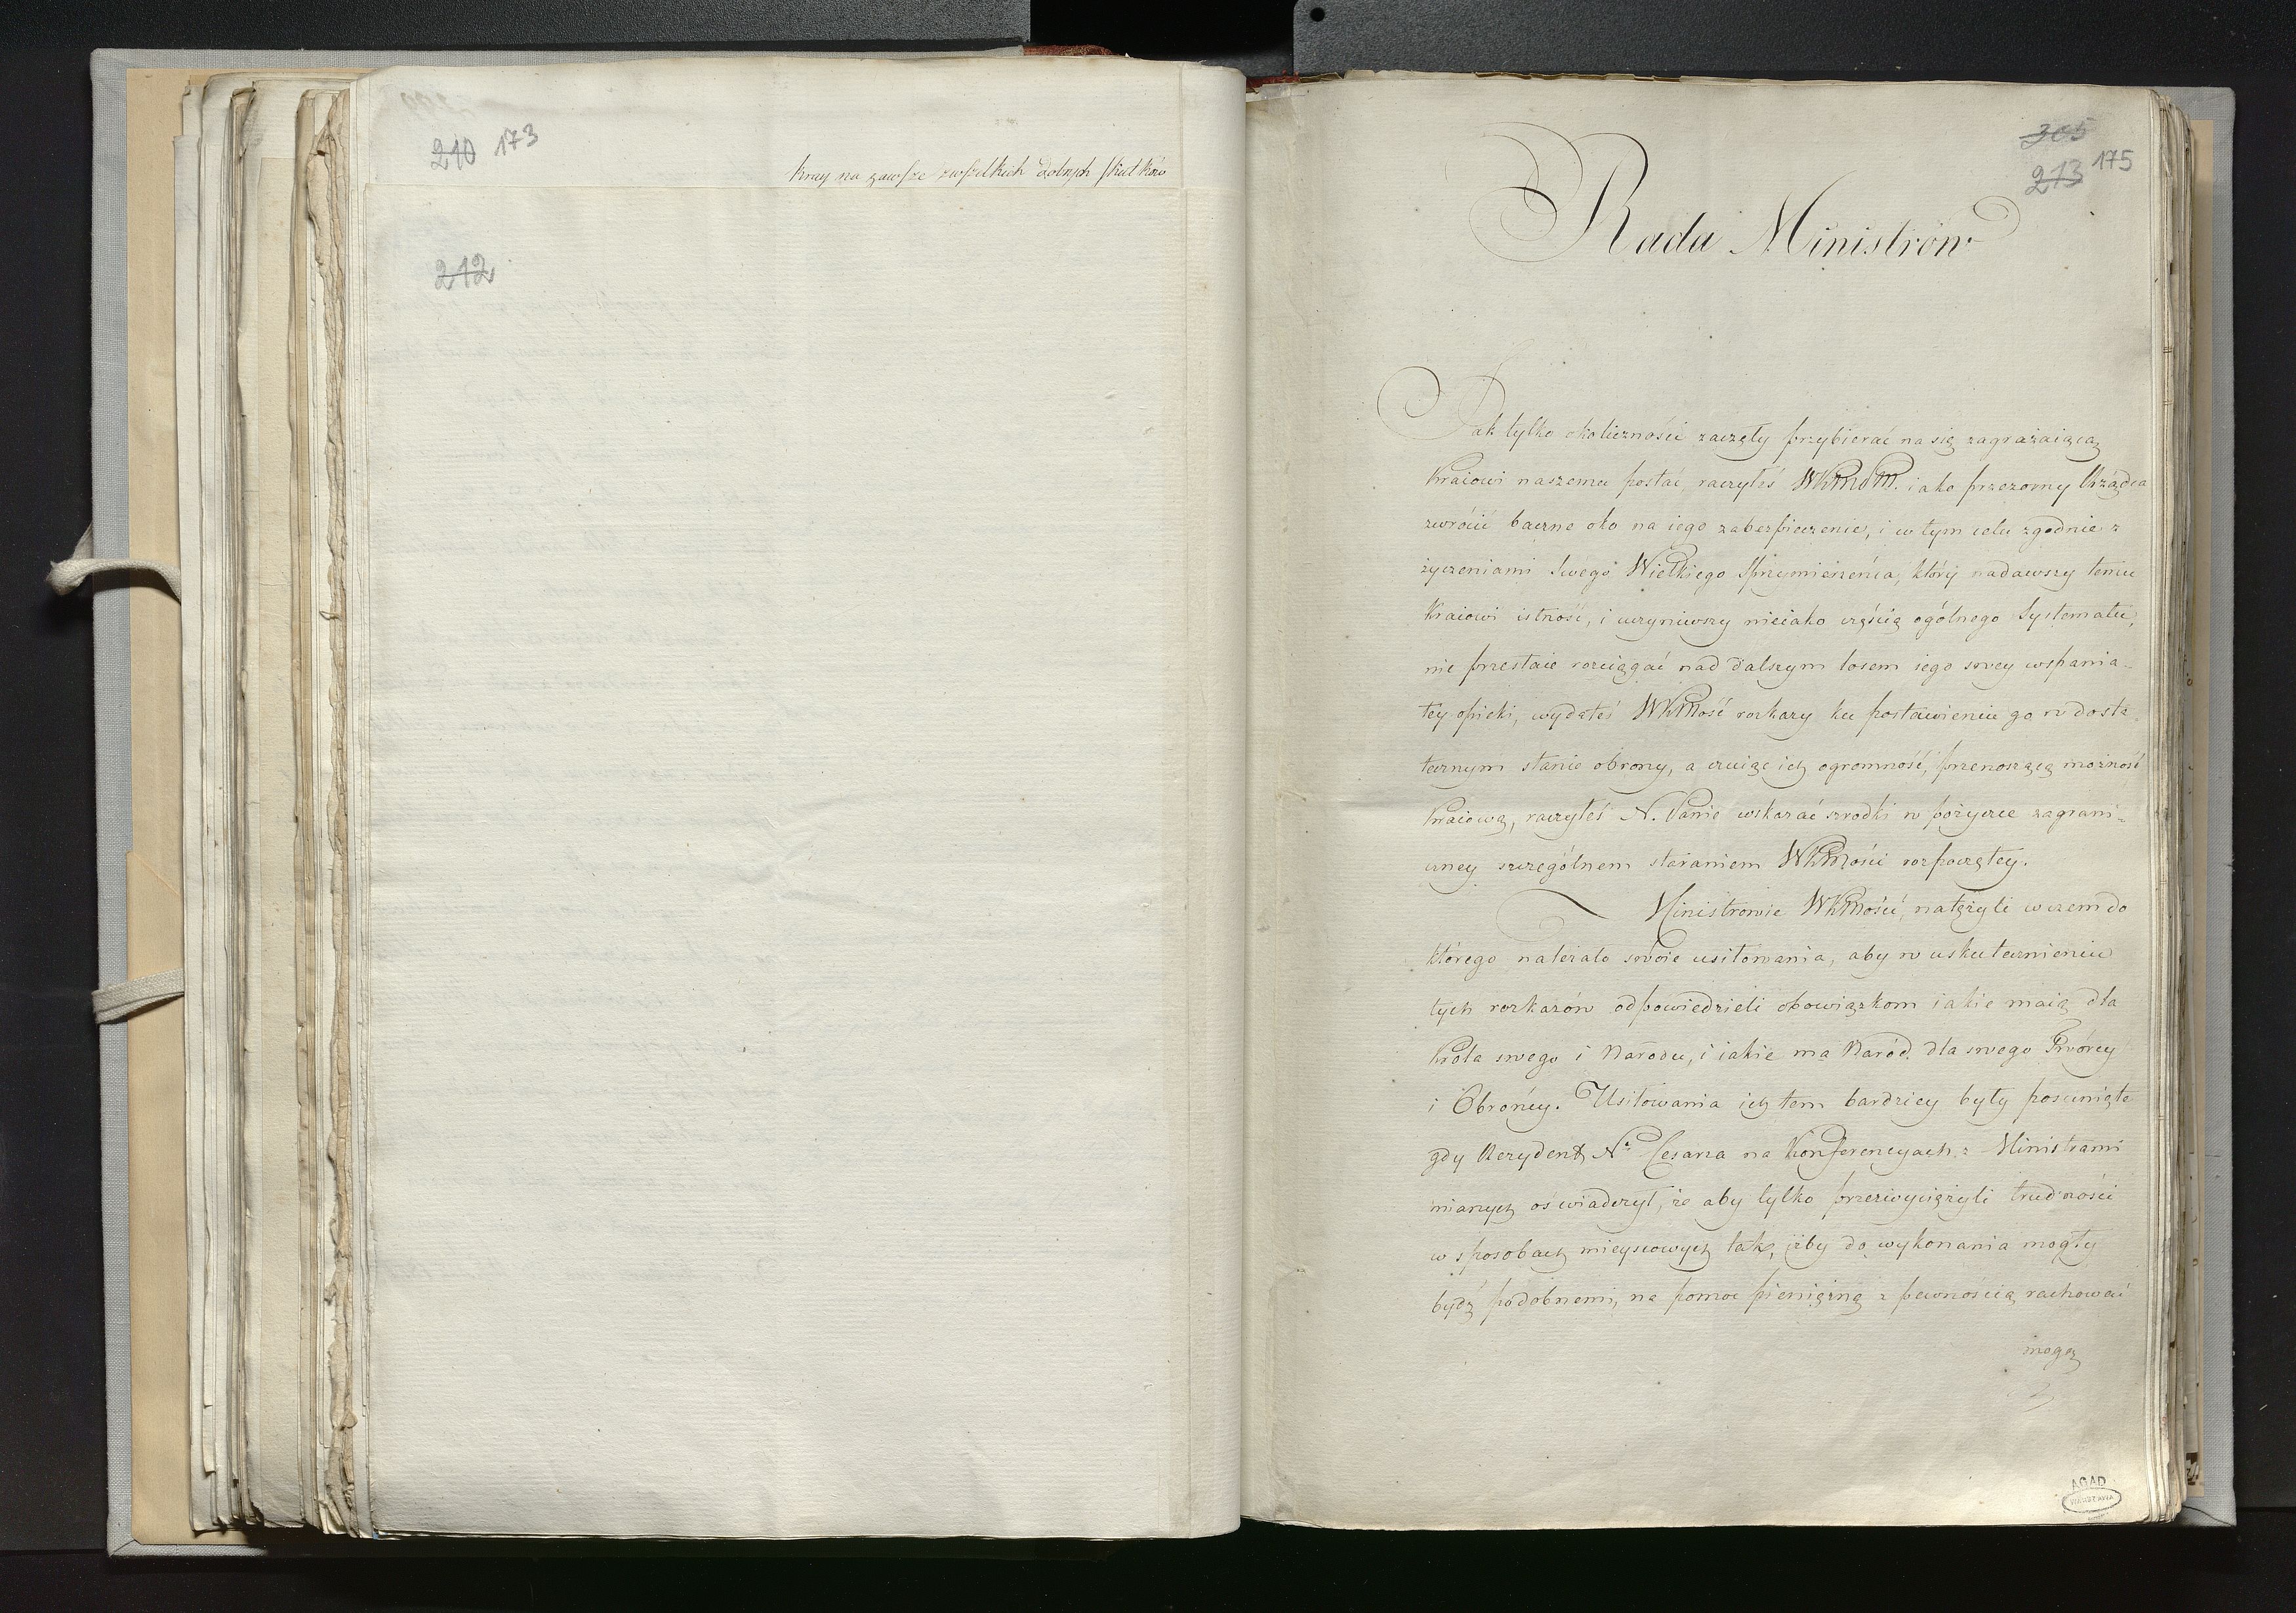 210 173
kray na zawsze wszelkich dobrych skutków
212
305
213 175
Rada Ministrów
Jak tylko okoliczności zaczęły przybierać na się zagrażaiącą
Kraiowi naszemu postać, raczyłeś WKMość. iako przezorny Urządca
zwrócić baczne oko na iego zabezpieczenie, i w tym celu zgodnie z
życzeniami Swego Wielkiego Sprzymierzeńca, który nadawszy temu
Kraiowi istność, i uczyniwszy nieiako częścią ogólnego Systematu,
nie przestaie rozciągać nad dalszym losem iego swey wspania-
łey opieki, wydałeś WKMość rozkazy ku postawieniu go w dosta-
tecznym stanie obrony, a czuiąc ich ogromność, przenoszącą możność
Kraiową, raczyłeś N. Panie wskazać srodki w pożyczce zagrani-
czney szczególnem staraniem WKMości rozpoczętey.
Ministrowie WKMości, natężyli w czem do
którego należało swoie usiłowania, aby w uskutecznieniu
tych rozkazów odpowiedzieli obowiązkom iakie maią dla
Króla swego i Narodu, i iakie ma Naród dla swego Twórcy
i Obrońcy. Usiłowania ich tem bardziey były posunięte
gdy Rezydent Nо Cesarza na Konferencyach z Ministrami
mianych oswiadczył, że aby tylko przezwyciężyli trudności
w sposobach mieyscowych tak, iżby do wykonania mogły
bydź podobnemi, na pomoc pieniężną z pewnością rachować
mogą
AGAD
WARSZAWA